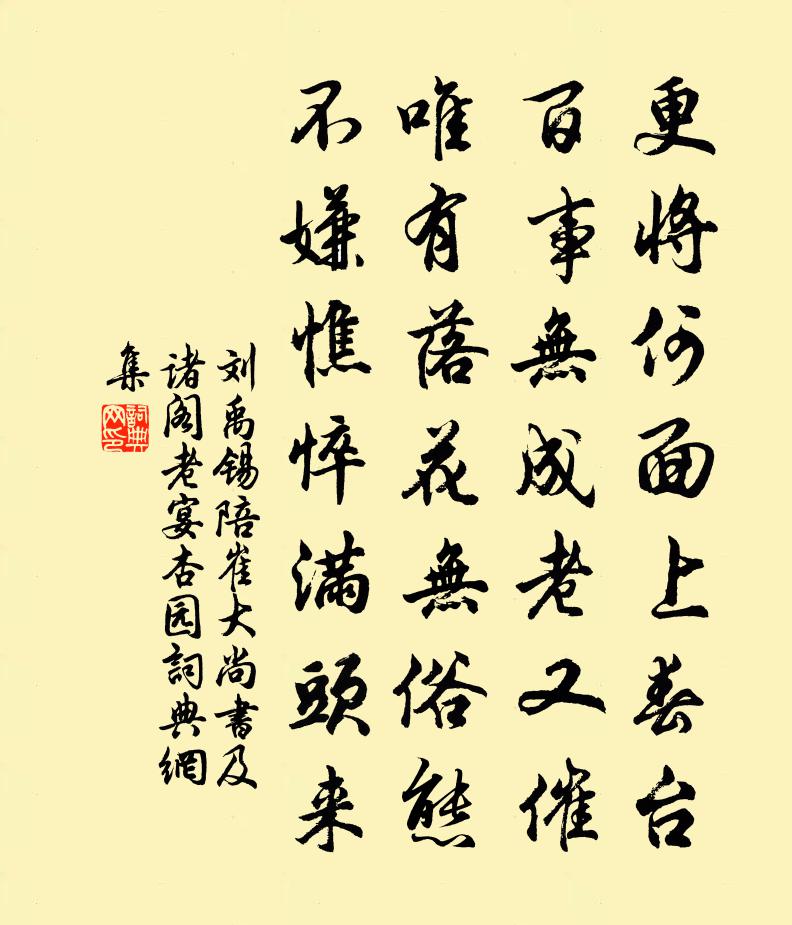 更将何面上春台
百事無成老又催
唯有落花無俗態
不嫌憔悴满頭来
刘禹锡陪崔大尚書及
诸阁老宴杏园詞典網
集
詞典网印